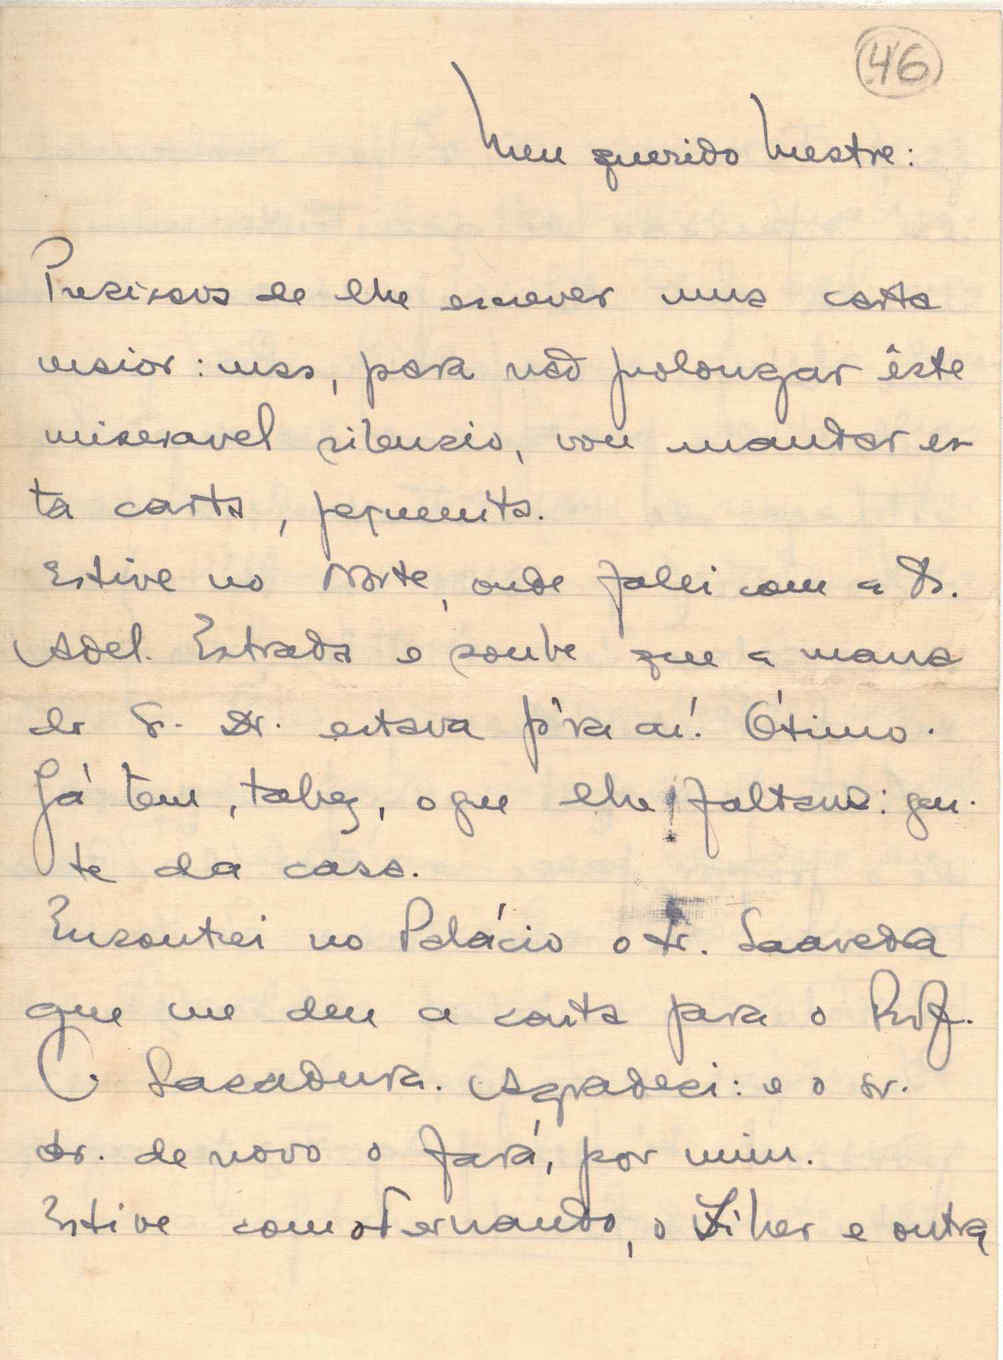 46
Meu querido Mestre:
Precisava de lhe escrever uma carta
maior: mas, para não prolongar êste
miseravel silencio, vou mandar es-
ta carta, pequenita.
Estive no Norte, onde falei com a D.
Adel. Estrada e soube que a mana
do Sr. Dr. estava p'ra aí! Ótimo.
Já tem, talvez, o que lhe faltava: gen-
te da casa.
Encontrei no Palácio o dr. Saavedra
que me deu a carta para o Prof.
Sacadura. Agradeci: e o sr.
dr. de novo o fará, por mim.
Estive com o Fernando, o Liher e outra